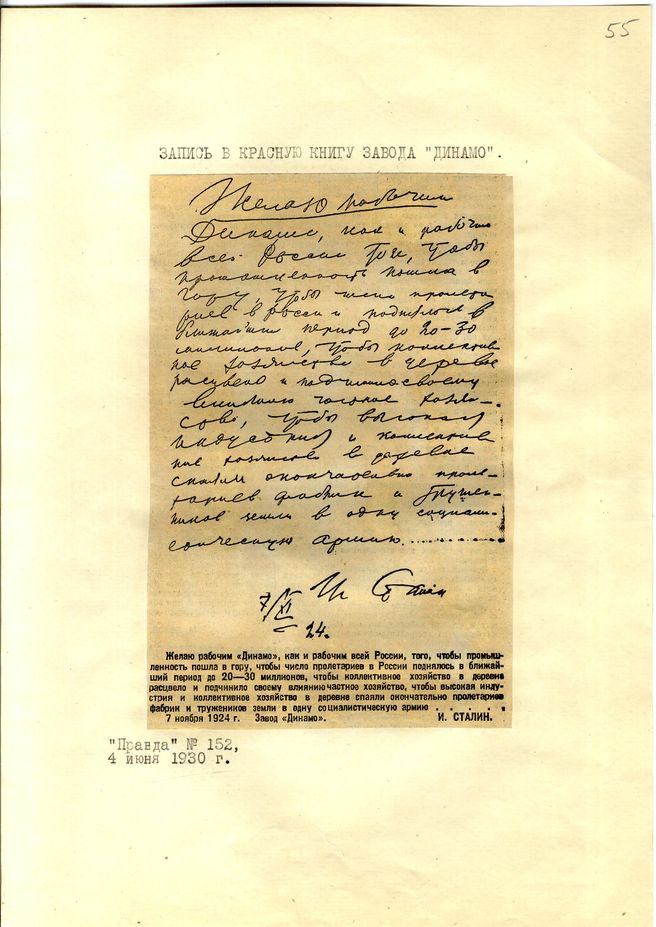 55
ЗАПИСЬ В КРАСНУЮ КНИГУ ЗАВОДА "ДИНАМО".
Желаю рабочим
Динамо, как и рабочим
всей России того, чтобы
промышленность пошла в
гору, чтобы число пролета
риев в России поднялось в
ближайший период до 20-30
миллионов, чтобы коллектив
ное хозяйство в деревне
расцвело и подчинило своему
влиянию частное хозяй-
ство, чтобы высокая
индустрия и коллектив
ное хозяйство в деревне
спаяли окончательно проле-
тариев фабрик и тружен-
ников земли в одну социали-
стическую армию..........
И. Сталин
7/XI
24.
Желаю рабочим «Динамо», как и рабочим всей России, того, чтобы промыш-
ленность пошла в гору, чтобы число пролетариев в России поднялось в ближай-
ший период до 20—30 миллионов, чтобы коллективное хозяйство в деревне
расцвело и подчинило своему влиянию частное хозяйство, чтобы высокая инду-
стрия и коллективное хозяйство в деревне спаяли окончательно пролетариев
фабрик и тружеников земли в одну социалистическую армию . . . . . .
7 ноября 1924 г. Завод «Динамо». И. СТАЛИН.
"Правда" № 152,
4 июня 1930 г.